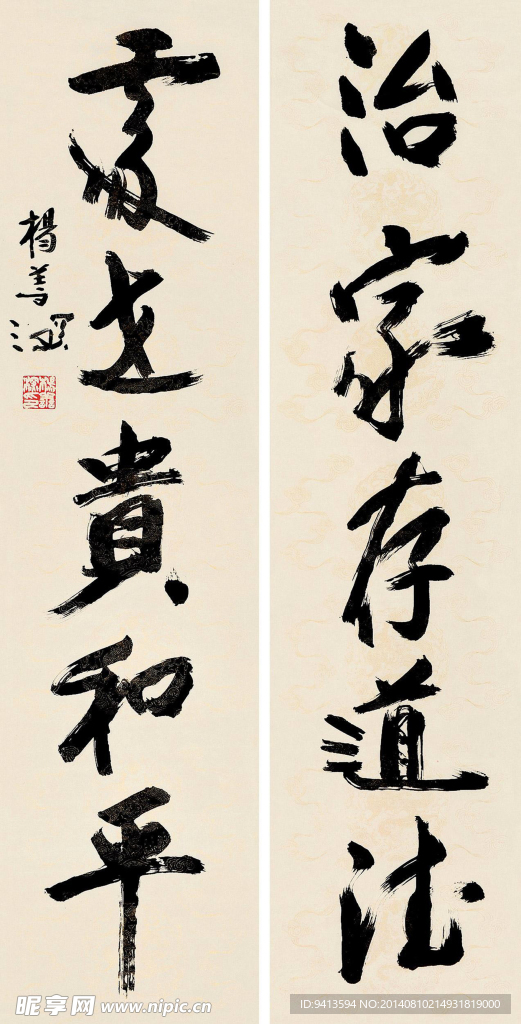 治家存道法
處世貴和平
楊善深
昵享网 www.nipic.cn
ID:9413594 NO:20140810214931819000